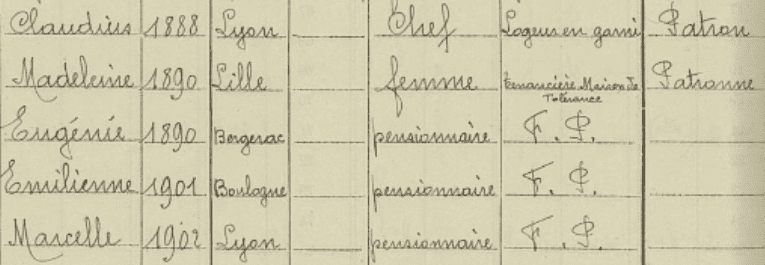 Claudius 1888 Lyon Chef Logeur en garni Patron
Madeleine 1890 Lille femme Tenancière Maison de Tolérance Patronne
Eugénie 1890 Bergerac pensionnaire F. P.
Emilienne 1901 Boulogne pensionnaire F. P.
Marcelle 1902 Lyon pensionnaire F. P.